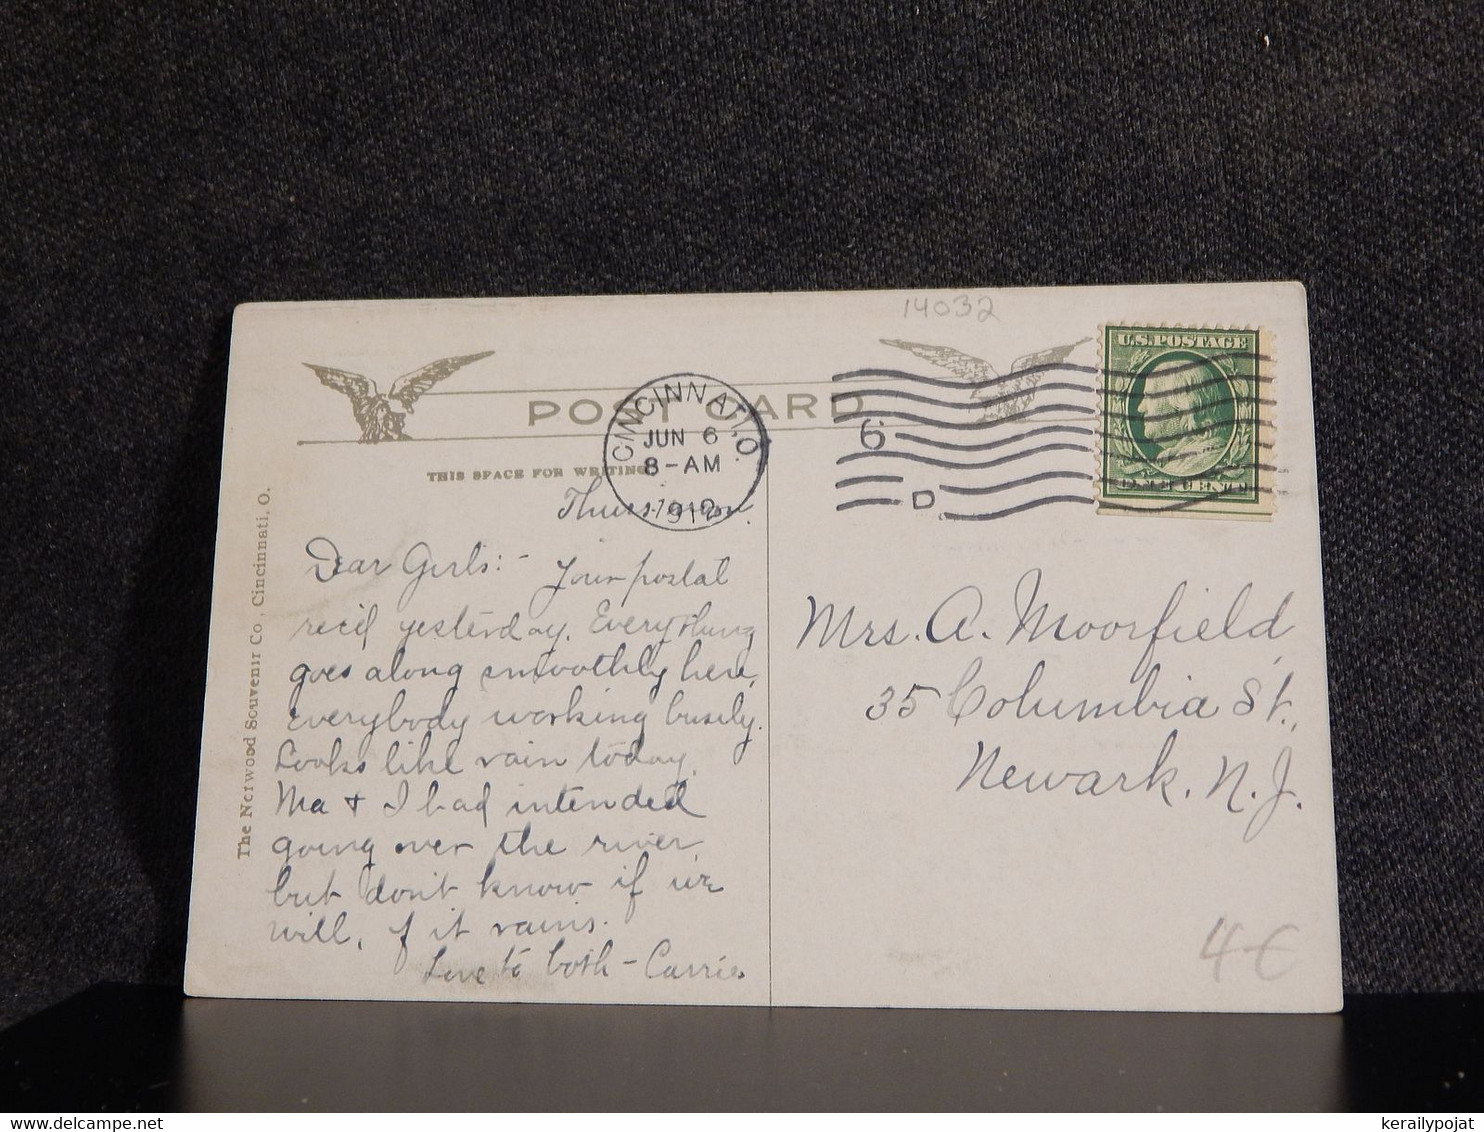 14032
U.S. POSTAGE
POST CARD
CINCINNATI, O.
JUN 6
8-AM
1912
6
D.
ONE CENT
THIS SPACE FOR WRITING
Thurs.
Dear Girls:- Your postal
rec'd yesterday. Everything
goes along smoothly here,
everybody working busily.
Looks like rain today.
Ma + I had intended
going over the river,
but don't know if we
will, if it rains.
Love to both - Carrie.
Mrs. A. Moorfield,
35 Columbia St.,
Newark, N.J.
The Norwood Souvenir Co., Cincinnati, O.
4€
kerailypojat
delcampe.net